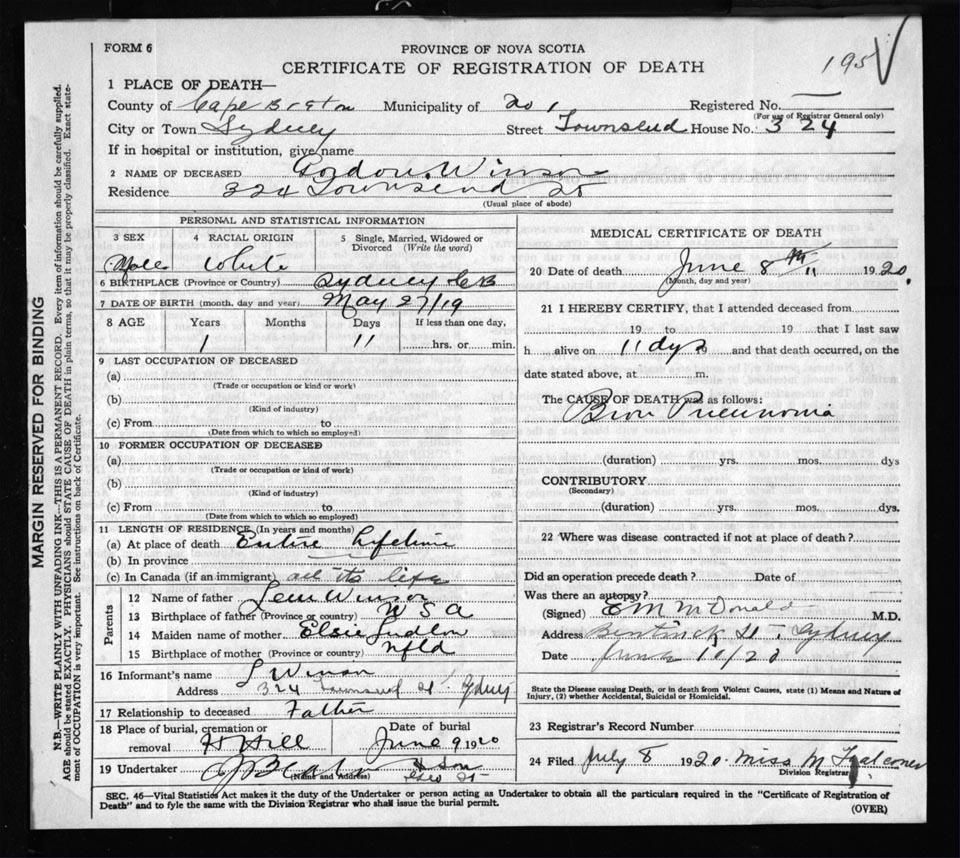 FORM 6
PROVINCE OF NOVA SCOTIA
CERTIFICATE OF REGISTRATION OF DEATH
195
1 PLACE OF DEATH—
County of Cape Breton Municipality of No 1 Registered No.
(For use of Registrar General only)
City or Town Sydney Street Townsend House No. 324
If in hospital or institution, give name
2 NAME OF DECEASED Gordon Winsor
Residence 324 Townsend St
(Usual place of abode)
PERSONAL AND STATISTICAL INFORMATION
3 SEX 4 RACIAL ORIGIN 5 Single, Married, Widowed or Divorced (Write the word)
Male White
6 BIRTHPLACE (Province or Country) Sydney CB
7 DATE OF BIRTH (month, day and year) May 27/19
8 AGE Years Months Days If less than one day,
1 11 hrs. or min.
9 LAST OCCUPATION OF DECEASED
(a)
(Trade or occupation or kind or work)
(b)
(Kind of industry)
(c) From to
(Date from which to which so employed)
10 FORMER OCCUPATION OF DECEASED
(a)
(Trade or occupation or kind of work)
(b)
(Kind of industry)
(c) From to
(Date from which to which so employed)
11 LENGTH OF RESIDENCE (In years and months)
(a) At place of death Entire lifetime
(b) In province
(c) In Canada (if an immigrant) all its life
Parents
12 Name of father Winsor
13 Birthplace of father (Province or country) USA
14 Maiden name of mother Elsie Ludlow
15 Birthplace of mother (Province or country) Nfld
16 Informant's name L Winsor
Address 324 Townsend St Sydney
17 Relationship to deceased Father
18 Place of burial, cremation or removal H Hill Date of burial June 9 1920
19 Undertaker & Son
(Name and Address) Geo St
MEDICAL CERTIFICATE OF DEATH
20 Date of death June 8th 1920.
(Month, day and year)
21 I HEREBY CERTIFY, that I attended deceased from
19 to 19 that I last saw
h alive on 11 dys 19 and that death occurred, on the
date stated above, at m.
The CAUSE OF DEATH was as follows:
Bron Pneumonia
(duration) yrs. mos. dys
CONTRIBUTORY
(Secondary)
(duration) yrs. mos. dys.
22 Where was disease contracted if not at place of death?
Did an operation precede death? Date of
Was there an autopsy?
(Signed) E M McDonald M.D.
Address Bentinck St Sydney
Date June 10/20
State the Disease causing Death, or in death from Violent Causes, state (1) Means and Nature of Injury, (2) whether Accidental, Suicidal or Homicidal.
23 Registrar's Record Number
24 Filed July 8 1920. Miss M Falconer
Division Registrar
SEC. 46—Vital Statistics Act makes it the duty of the Undertaker or person acting as Undertaker to obtain all the particulars required in the "Certificate of Registration of
Death" and to fyle the same with the Division Registrar who shall issue the burial permit.
(OVER)
MARGIN RESERVED FOR BINDING
N.B.—WRITE PLAINLY WITH UNFADING INK—THIS IS A PERMANENT RECORD. Every item of information should be carefully supplied.
AGE should be stated EXACTLY. PHYSICIANS should STATE CAUSE OF DEATH in plain terms, so that it may be properly classified. Exact statement of OCCUPATION is very important. See instructions on back of Certificate.